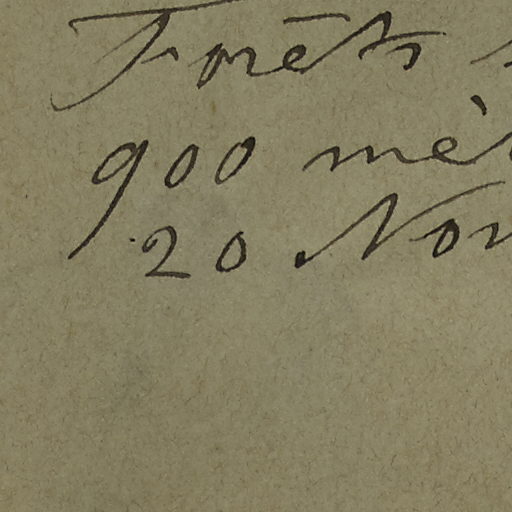 Forêts
900 mèt
20 Nov